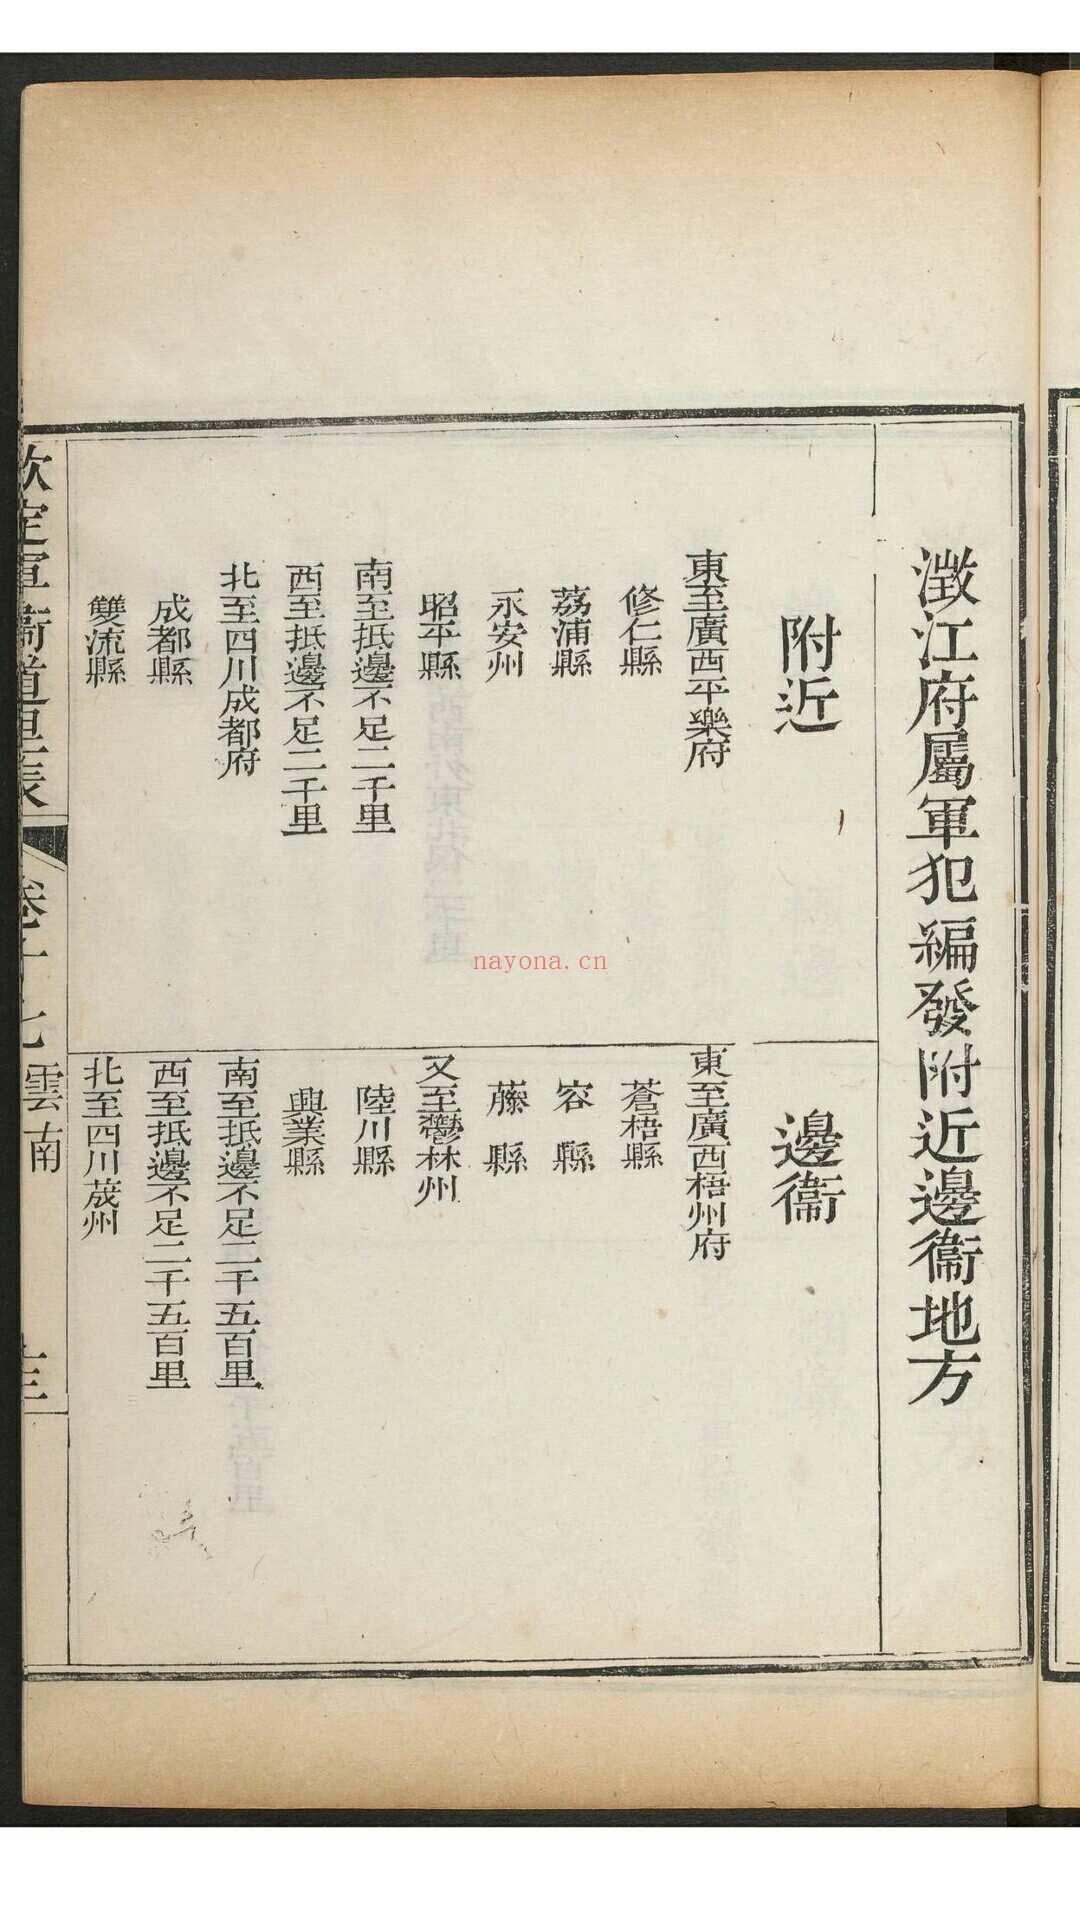 澂江府屬軍犯編發附近邊衞地方
附近
東至廣西平樂府
修仁縣
荔浦縣
永安州
昭平縣
南至抵邊不足二千里
西至抵邊不足二千里
北至四川成都府
成都縣
雙流縣
邊衞
東至廣西梧州府
蒼梧縣
容縣
藤縣
又至鬱林州
陸川縣
興業縣
南至抵邊不足二千五百里
西至抵邊不足二千五百里
北至四川茂州
欽定軍衞道里表
卷十七
雲南
nayona.cn